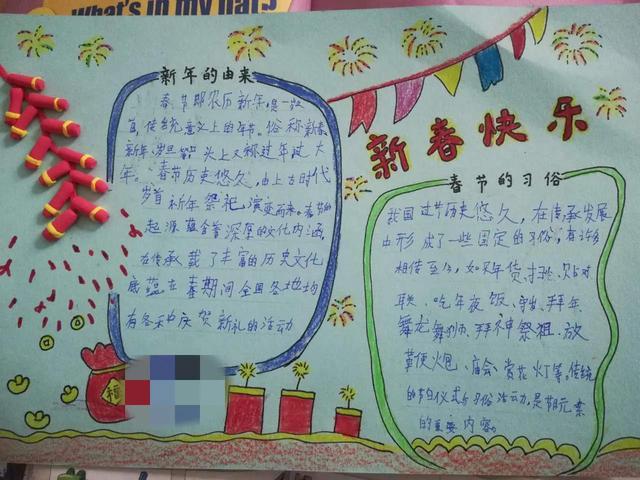 What's in my hat?
新年的由来
春节即农历新年,是一岁
首,传统意义上的年节。俗称新春
新年,岁旦 头上又称过年过大
年。春节历史悠久,由上古时代
岁首祈年祭祀演变而来。春节的
起源蕴含着深厚的文化内涵
在传承载了丰富的历史文化
底蕴在春期间全国各地均
有各种庆贺新礼的活动
新春快乐
春节的习俗
我国过节历史悠久,在传承发展
中形成了一些固定的习俗,有许多
相传至今,如买年货,扫 ,贴对
联、吃年夜饭、守岁、拜年
舞龙舞狮、拜神祭祖、放
鞭炮、庙会、赏花灯等。传统
的节日仪式与习俗活动,是节元素
的重要内容。
福